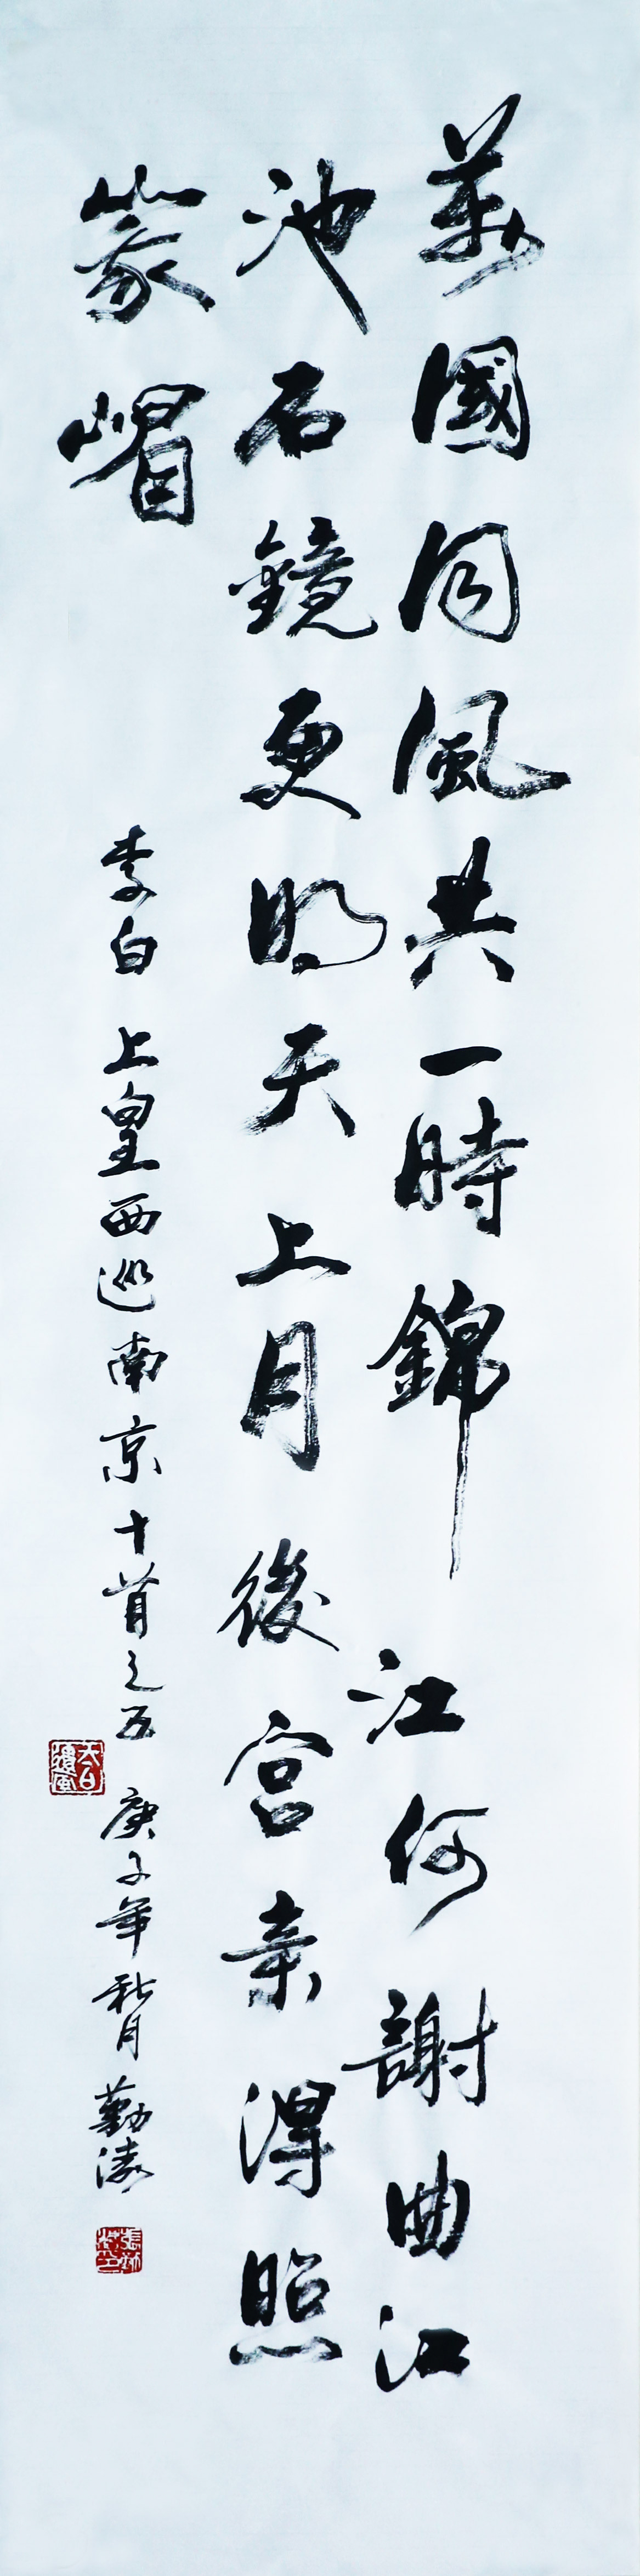 萬國同風共一時錦江何謝曲江
池石鏡更明天上月後宮亲得照
峩嵋
李白 上皇西巡南京十首之五 庚子年秋月 勤